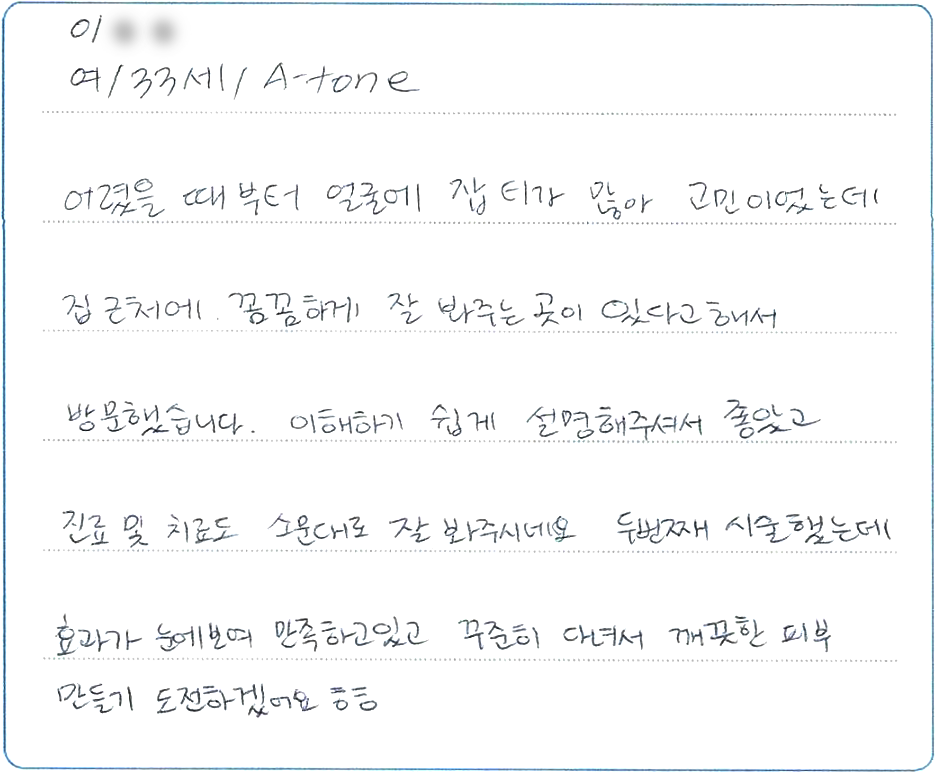 이
여/33세/ A-tone
어렸을 때부터 얼굴에 잡티가 많아 고민이었는데
집 근처에 꼼꼼하게 잘 봐주는 곳이 있다고해서
방문했습니다. 이해하기 쉽게 설명해주셔서 좋았고
진료 및 치료도 소문대로 잘 봐주시네요 두번째 시술했는데
효과가 눈에보여 만족하고있고 꾸준히 다녀서 깨끗한 피부
만들기 도전하겠어요 ㅎㅎ